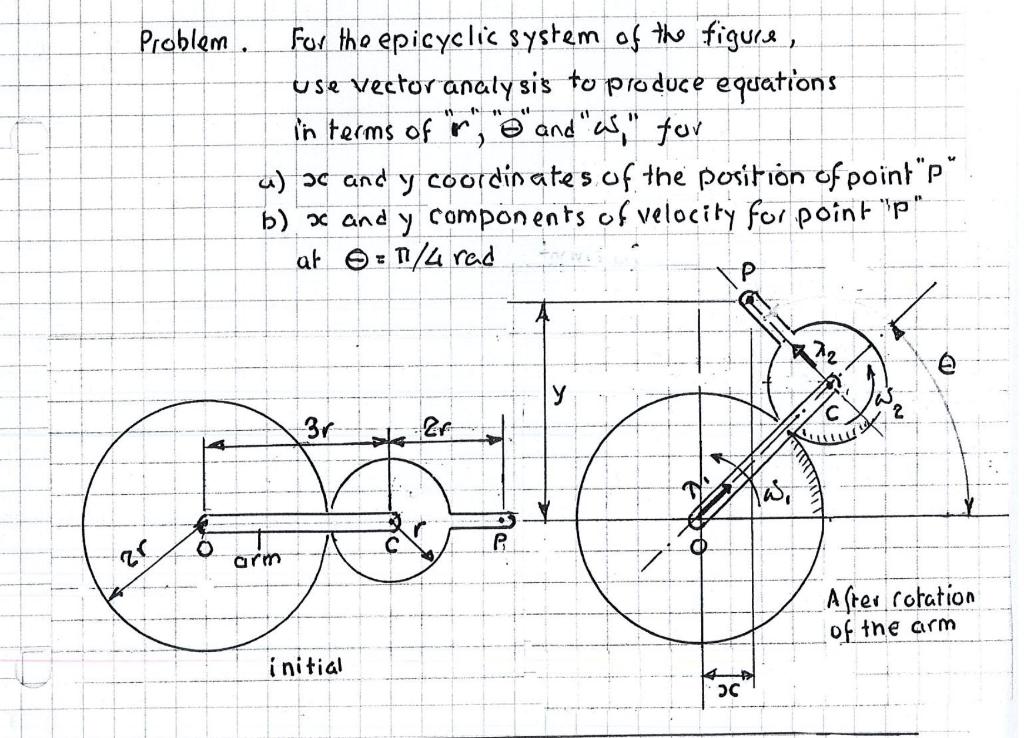 Problem. For the epicyclic system of the figure,
use vector analysis to produce equations
in terms of "r", "θ" and "ω₁" for
a) x and y coordinates of the position of point "P"
b) x and y components of velocity for point "P"
at θ = π/4 rad
P
λ₂
θ
y
C
ω₂
3r
2r
λ₁
ω₁
2r
O
arm
C
r
P
O
After rotation
of the arm
initial
x